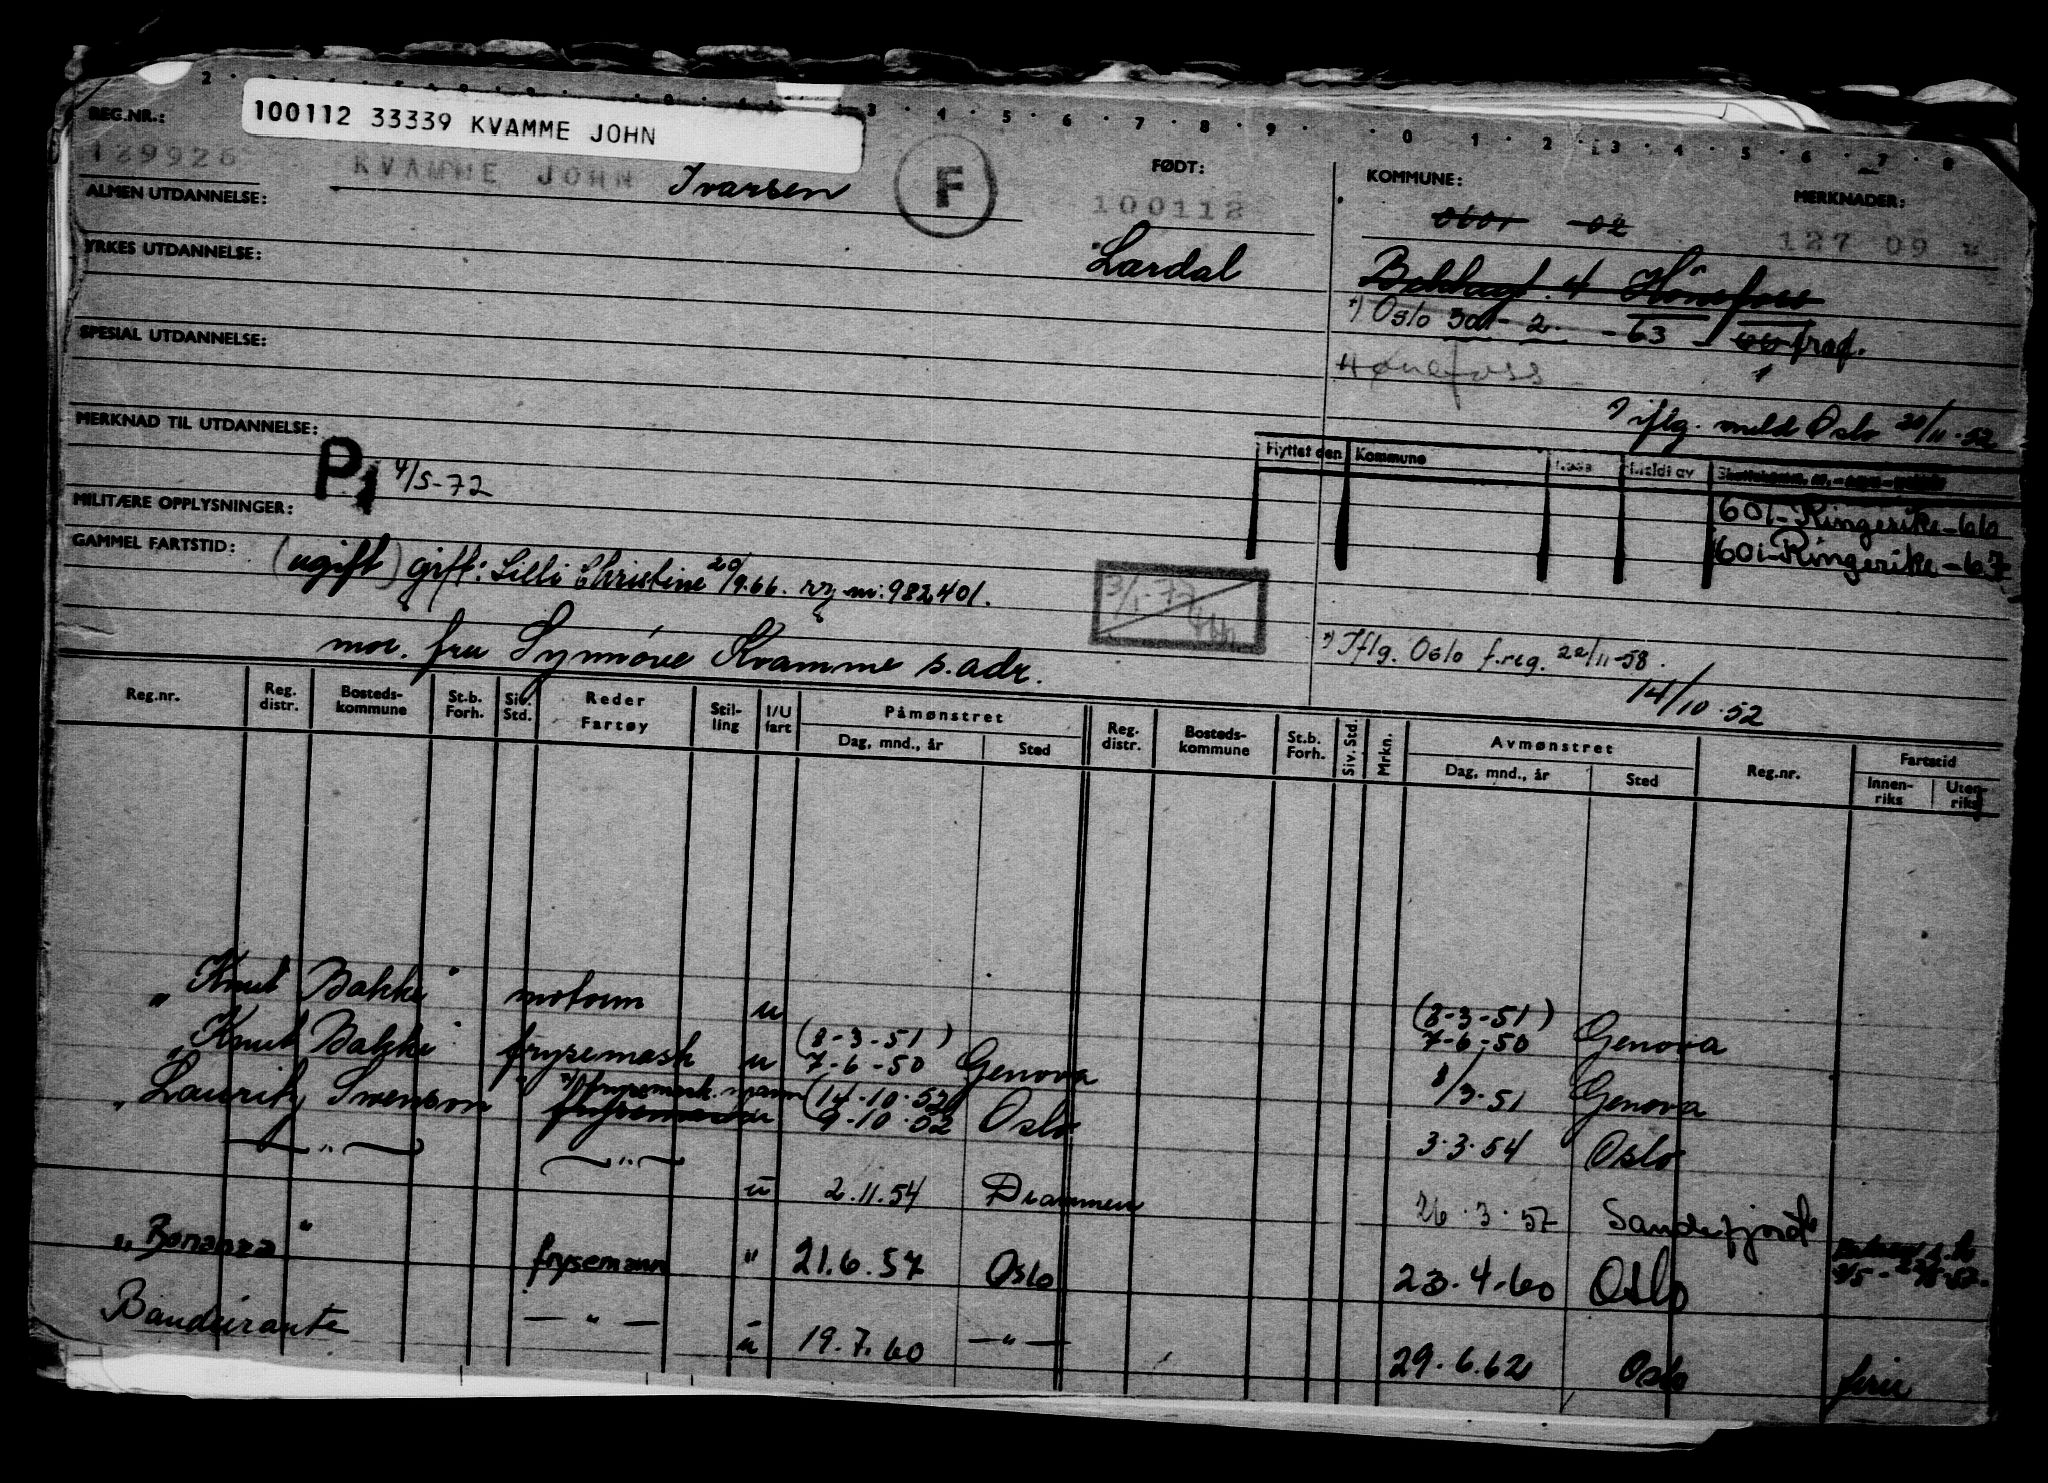 100112 33339 KVAMME JOHN
REG.NR.:
129926
KVAMME JOHN Ivarsen
F
FØDT:
100112
Lærdal
KOMMUNE:
0601 02
MERKNADER:
127 09
4 Hönefoss
*) Oslo 301 - 2. - 63 -
Hønefoss
*) iflg. meld Oslo 20/11-52
ALMEN UTDANNELSE:
YRKES UTDANNELSE:
SPESIAL UTDANNELSE:
MERKNAD TIL UTDANNELSE:
P1 4/5-72
MILITÆRE OPPLYSNINGER:
GAMMEL FARTSTID:
Flyttet den Kommune Meldt av
601-Ringerike-66
601-Ringerike-67
(ugift) gift: Lilli Christine 20/9.66. rg nr: 982401.
3/1-77
mor. fru Synnöve Kvamme s. adr.
*) Iflg. Oslo f.reg. 22/11-58.
14/10.52
Reg.nr. Reg. distr. Bosteds-kommune St.b. Forh. Siv. Std. Reder Fartøy Stil-ling I/U fart Påmønstret Dag, mnd., år Sted Reg. distr. Bosteds-kommune St.b. Forh. Siv. Std. Mrkn. Avmønstret Dag, mnd., år Sted Reg.nr. Fartstid Innen-riks Uten-riks
"Knut Bakke" motorm u (8-3-51) 7-6-50 Genova
"Knut Bakke" frysemask u (8-3-51) 7-6-50 Genova 8/3-51 Genova
"Lauritz Swenson" frysemask. mann (14-10-52) 9-10-52 Oslo 3.3.54 Oslo
— " — — " — u 2.11.54 Drammen 26.3.57 Sandefjord
"Bonanza" frysemann " 21.6.57 Oslo 23.4.60 Oslo
Bandeirante — " — u 19.7.60 — " — 29.6.62 Oslo ferie